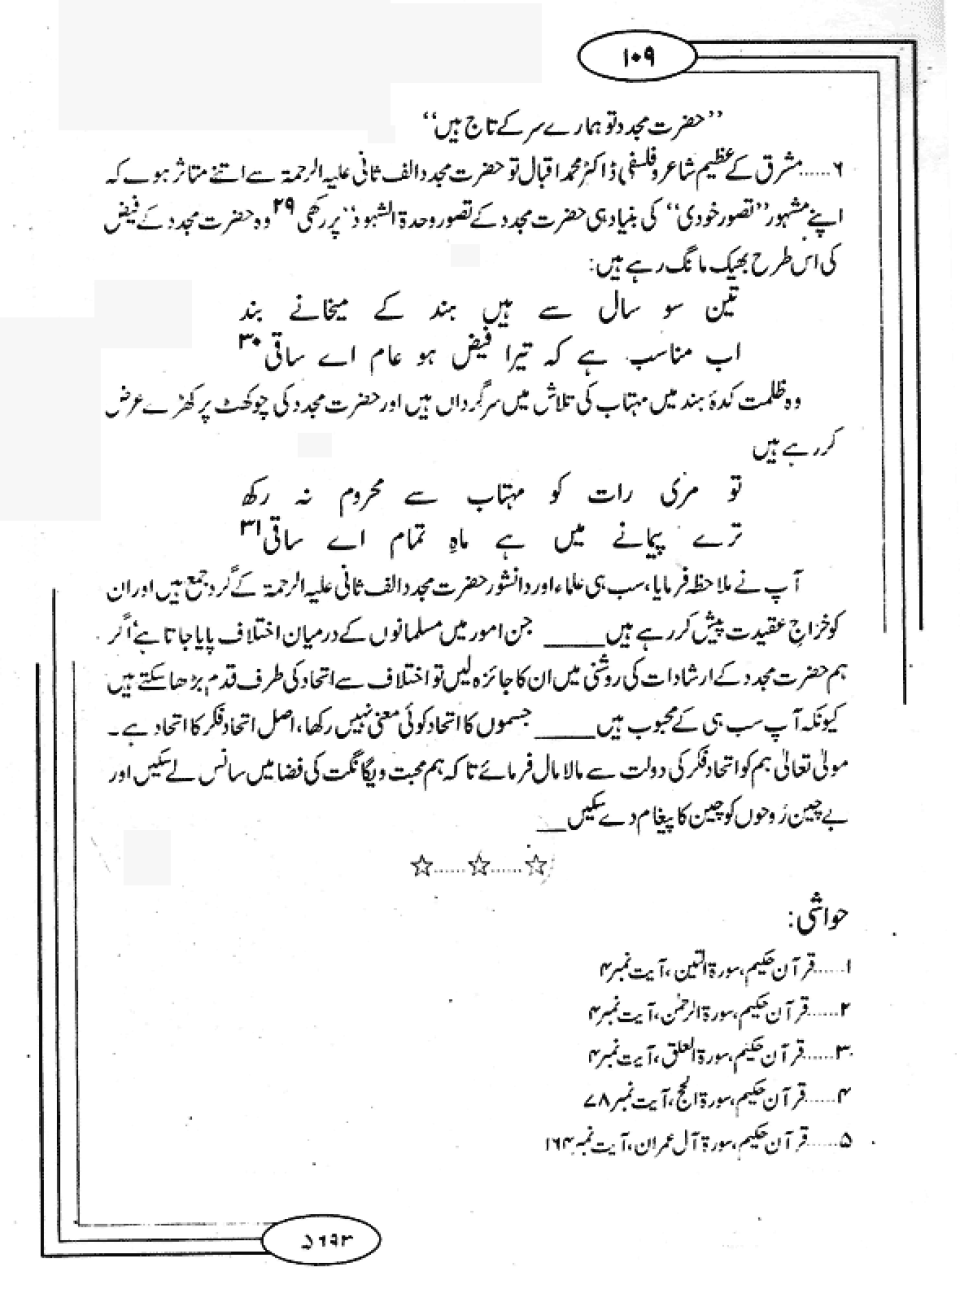 ۱۰۹
’’حضرت مجدد تو ہمارے سر کے تاج ہیں‘‘
۶......مشرق کے عظیم شاعر و فلسفی ڈاکٹر محمد اقبال تو حضرت مجدد الف ثانی علیہ الرحمۃ سے اتنے متاثر ہوے کہ
اپنے مشہور ’’تصور خودی‘‘ کی بنیاد ہی حضرت مجدد کے تصور وحدۃ الشہود‘‘ پر رکھی ۲۹ وہ حضرت مجدد کے فیض
کی اس طرح بھیک مانگ رہے ہیں:
تین سو سال سے ہیں ہند کے میخانے بند
اب مناسب ہے کہ تیرا فیض ہو عام اے ساقی ۳۰
وہ ظلمت کدۂ ہند میں مہتاب کی تلاش میں سرگرداں ہیں اور حضرت مجدد کی چوکھٹ پر کھڑے عرض
کر رہے ہیں
تو مری رات کو مہتاب سے محروم نہ رکھ
ترے پیمانے میں ہے ماہِ تمام اے ساقی ۳۱
آپ نے ملاحظہ فرمایا، سب ہی علماء اور دانشور حضرت مجدد الف ثانی علیہ الرحمۃ کے گرد جمع ہیں اور ان
کو خراجِ عقیدت پیش کر رہے ہیں____ جن امور میں مسلمانوں کے درمیان اختلاف پایا جاتا ہے‘ اگر
ہم حضرت مجدد کے ارشادات کی روشنی میں ان کا جائزہ لیں تو اختلاف سے اتحاد کی طرف قدم بڑھا سکتے ہیں
کیونکہ آپ سب ہی کے محبوب ہیں____ جسموں کا اتحاد کوئی معنی نہیں رکھا، اصل اتحاد فکر کا اتحاد ہے۔
مولیٰ تعالیٰ ہم کو اتحاد فکر کی دولت سے مالا مال فرمائے تاکہ ہم محبت و یگانگت کی فضا میں سانس لے سکیں اور
بے چین رُوحوں کو چین کا پیغام دے سکیں__
☆......☆......☆
حواشی:
۱......قرآن حکیم، سورۃ التین، آیت نمبر ۴
۲......قرآن حکیم، سورۃ الرحمٰن، آیت نمبر ۴
۳......قرآن حکیم، سورۃ العلق، آیت نمبر ۴
۴......قرآن حکیم، سورۃ الحج، آیت نمبر ۷۸
۵......قرآن حکیم، سورۃ آل عمران، آیت نمبر ۱۶۴